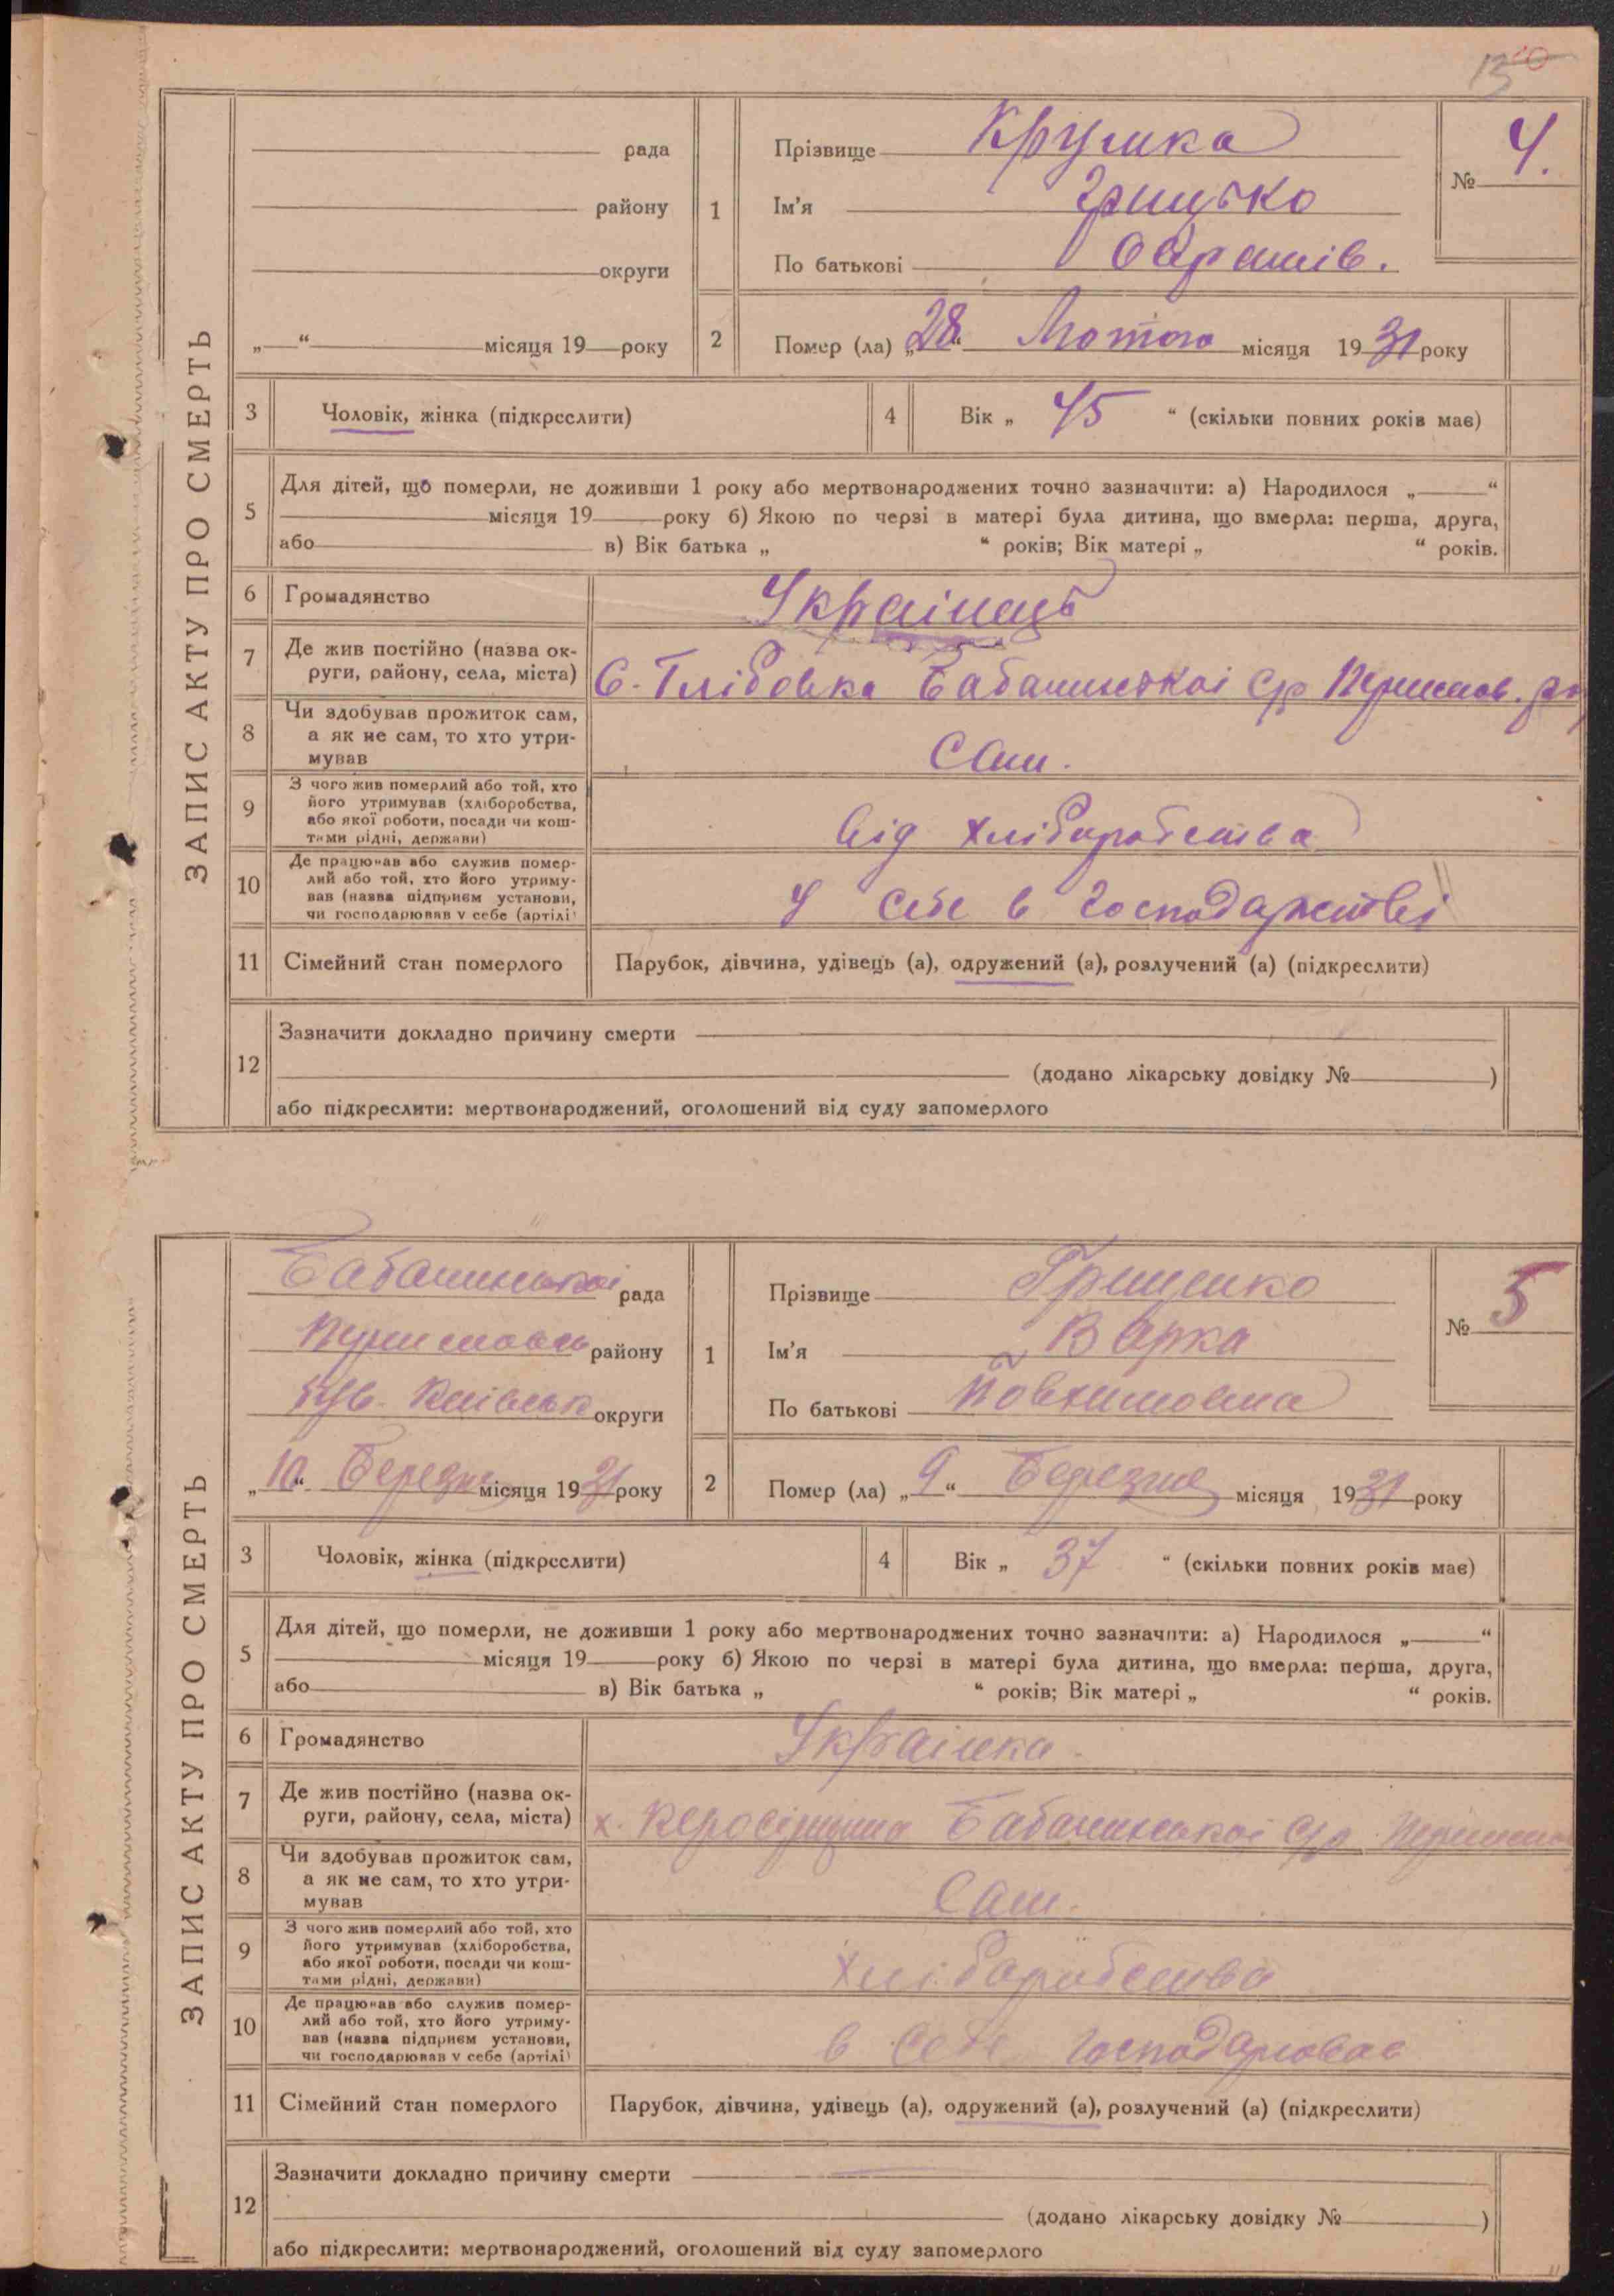 150
ЗАПИС АКТУ ПРО СМЕРТЬ
рада
району
округи
„ “ місяця 19 року
1
Прізвище Крушка
Ім'я Грицько
По батькові Оврамів.
№ 4.
2
Помер (ла) „28“ Лютого місяця 1931 року
3
Чоловік, жінка (підкреслити)
4
Вік „ 45 “ (скільки повних років має)
5
Для дітей, що померли, не доживши 1 року або мертвонароджених точно зазначити: а) Народилося „ “
місяця 19 року б) Якою по черзі в матері була дитина, що вмерла: перша, друга,
або в) Вік батька „ “ років; Вік матері „ “ років.
6
Громадянство
Українець
7
Де жив постійно (назва ок-
руги, району, села, міста)
С. Глібовка Бабачинської с/р
8
Чи здобував прожиток сам,
а як не сам, то хто утри-
мував
Сам.
9
З чого жив померлий або той, хто
його утримував (хліборобства,
або якої роботи, посади чи кош-
тами рідні, держави)
Від хліборобства
10
Де працював або служив помер-
лий або той, хто його утриму-
вав (назва підприєм установи,
чи господарював у себе (артілі)
У себе в господарстві
11
Сімейний стан померлого
Парубок, дівчина, удівець (а), одружений (а), розлучений (а) (підкреслити)
12
Зазначити докладно причину смерти
(додано лікарську довідку № )
або підкреслити: мертвонароджений, оголошений від суду запомерлого
ЗАПИС АКТУ ПРО СМЕРТЬ
Бабачинської рада
району
Київськ округи
„10“ Березня місяця 1931 року
1
Прізвище Грищенко
Ім'я Варка
По батькові Йовхимовна
№ 5
2
Помер (ла) „9“ Березня місяця 1931 року
3
Чоловік, жінка (підкреслити)
4
Вік „ 37 “ (скільки повних років має)
5
Для дітей, що померли, не доживши 1 року або мертвонароджених точно зазначити: а) Народилося „ “
місяця 19 року б) Якою по черзі в матері була дитина, що вмерла: перша, друга,
або в) Вік батька „ “ років; Вік матері „ “ років.
6
Громадянство
Українка.
7
Де жив постійно (назва ок-
руги, району, села, міста)
х. Бабачинської с/р
8
Чи здобував прожиток сам,
а як не сам, то хто утри-
мував
Сам.
9
З чого жив померлий або той, хто
його утримував (хліборобства,
або якої роботи, посади чи кош-
тами рідні, держави)
Хліборобства
10
Де працював або служив помер-
лий або той, хто його утриму-
вав (назва підприєм установи,
чи господарював у себе (артілі)
в себе господарював
11
Сімейний стан померлого
Парубок, дівчина, удівець (а), одружений (а), розлучений (а) (підкреслити)
12
Зазначити докладно причину смерти
(додано лікарську довідку № )
або підкреслити: мертвонароджений, оголошений від суду запомерлого